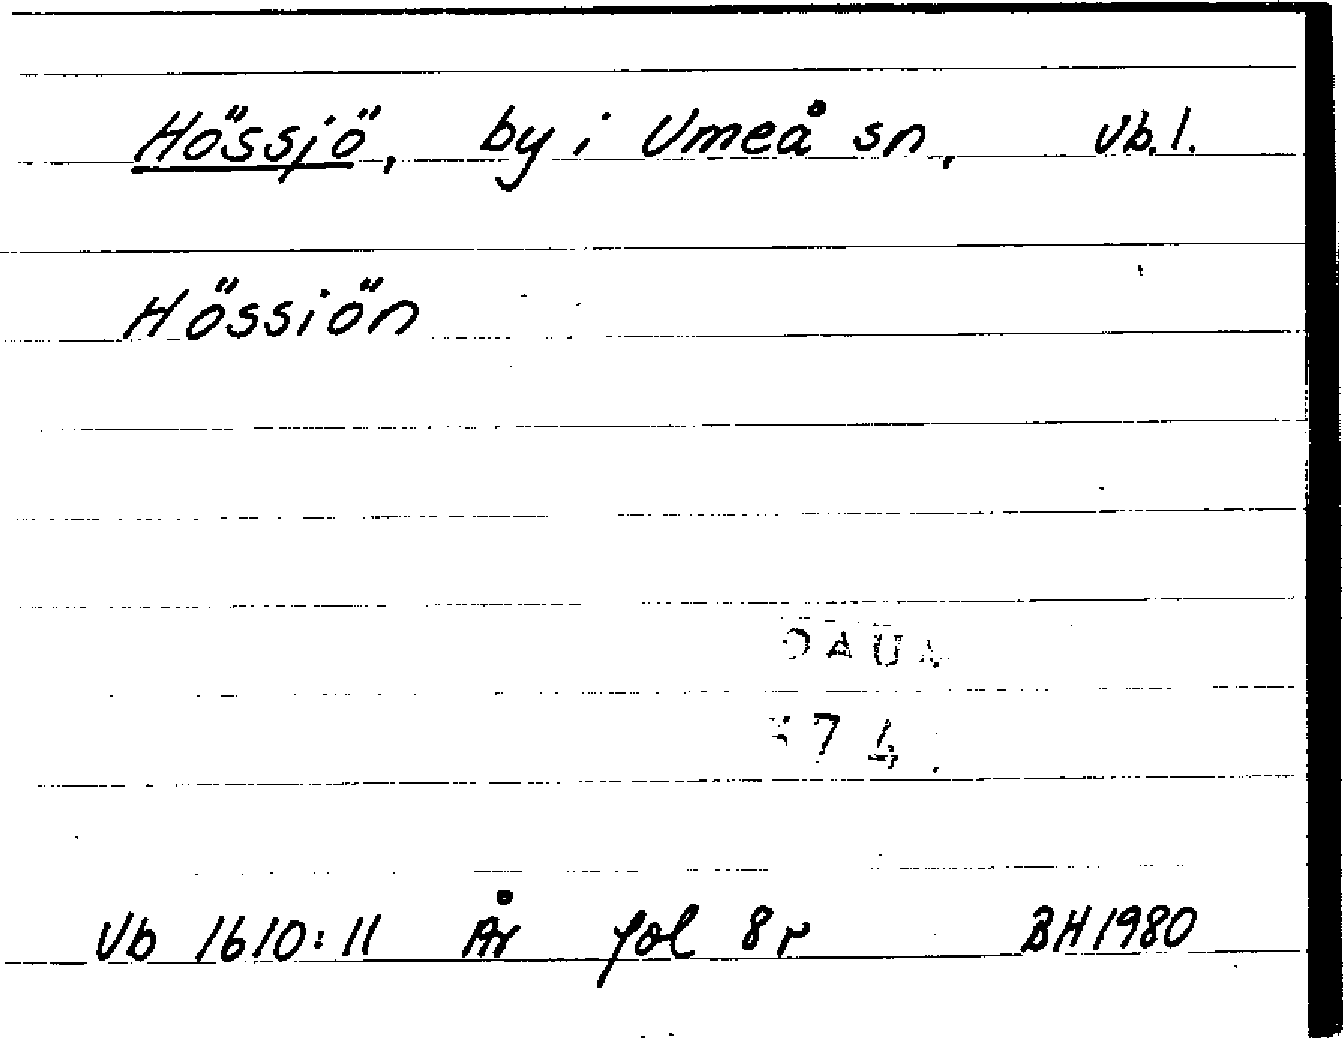 Hössjö, by i Umeå sn, Vb.l.
Hössiön
DAUM
374
Vb 1610:11 År fol 8r BH 1980